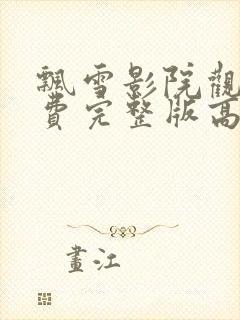 飄雪影院觀
費完整版高
畫江